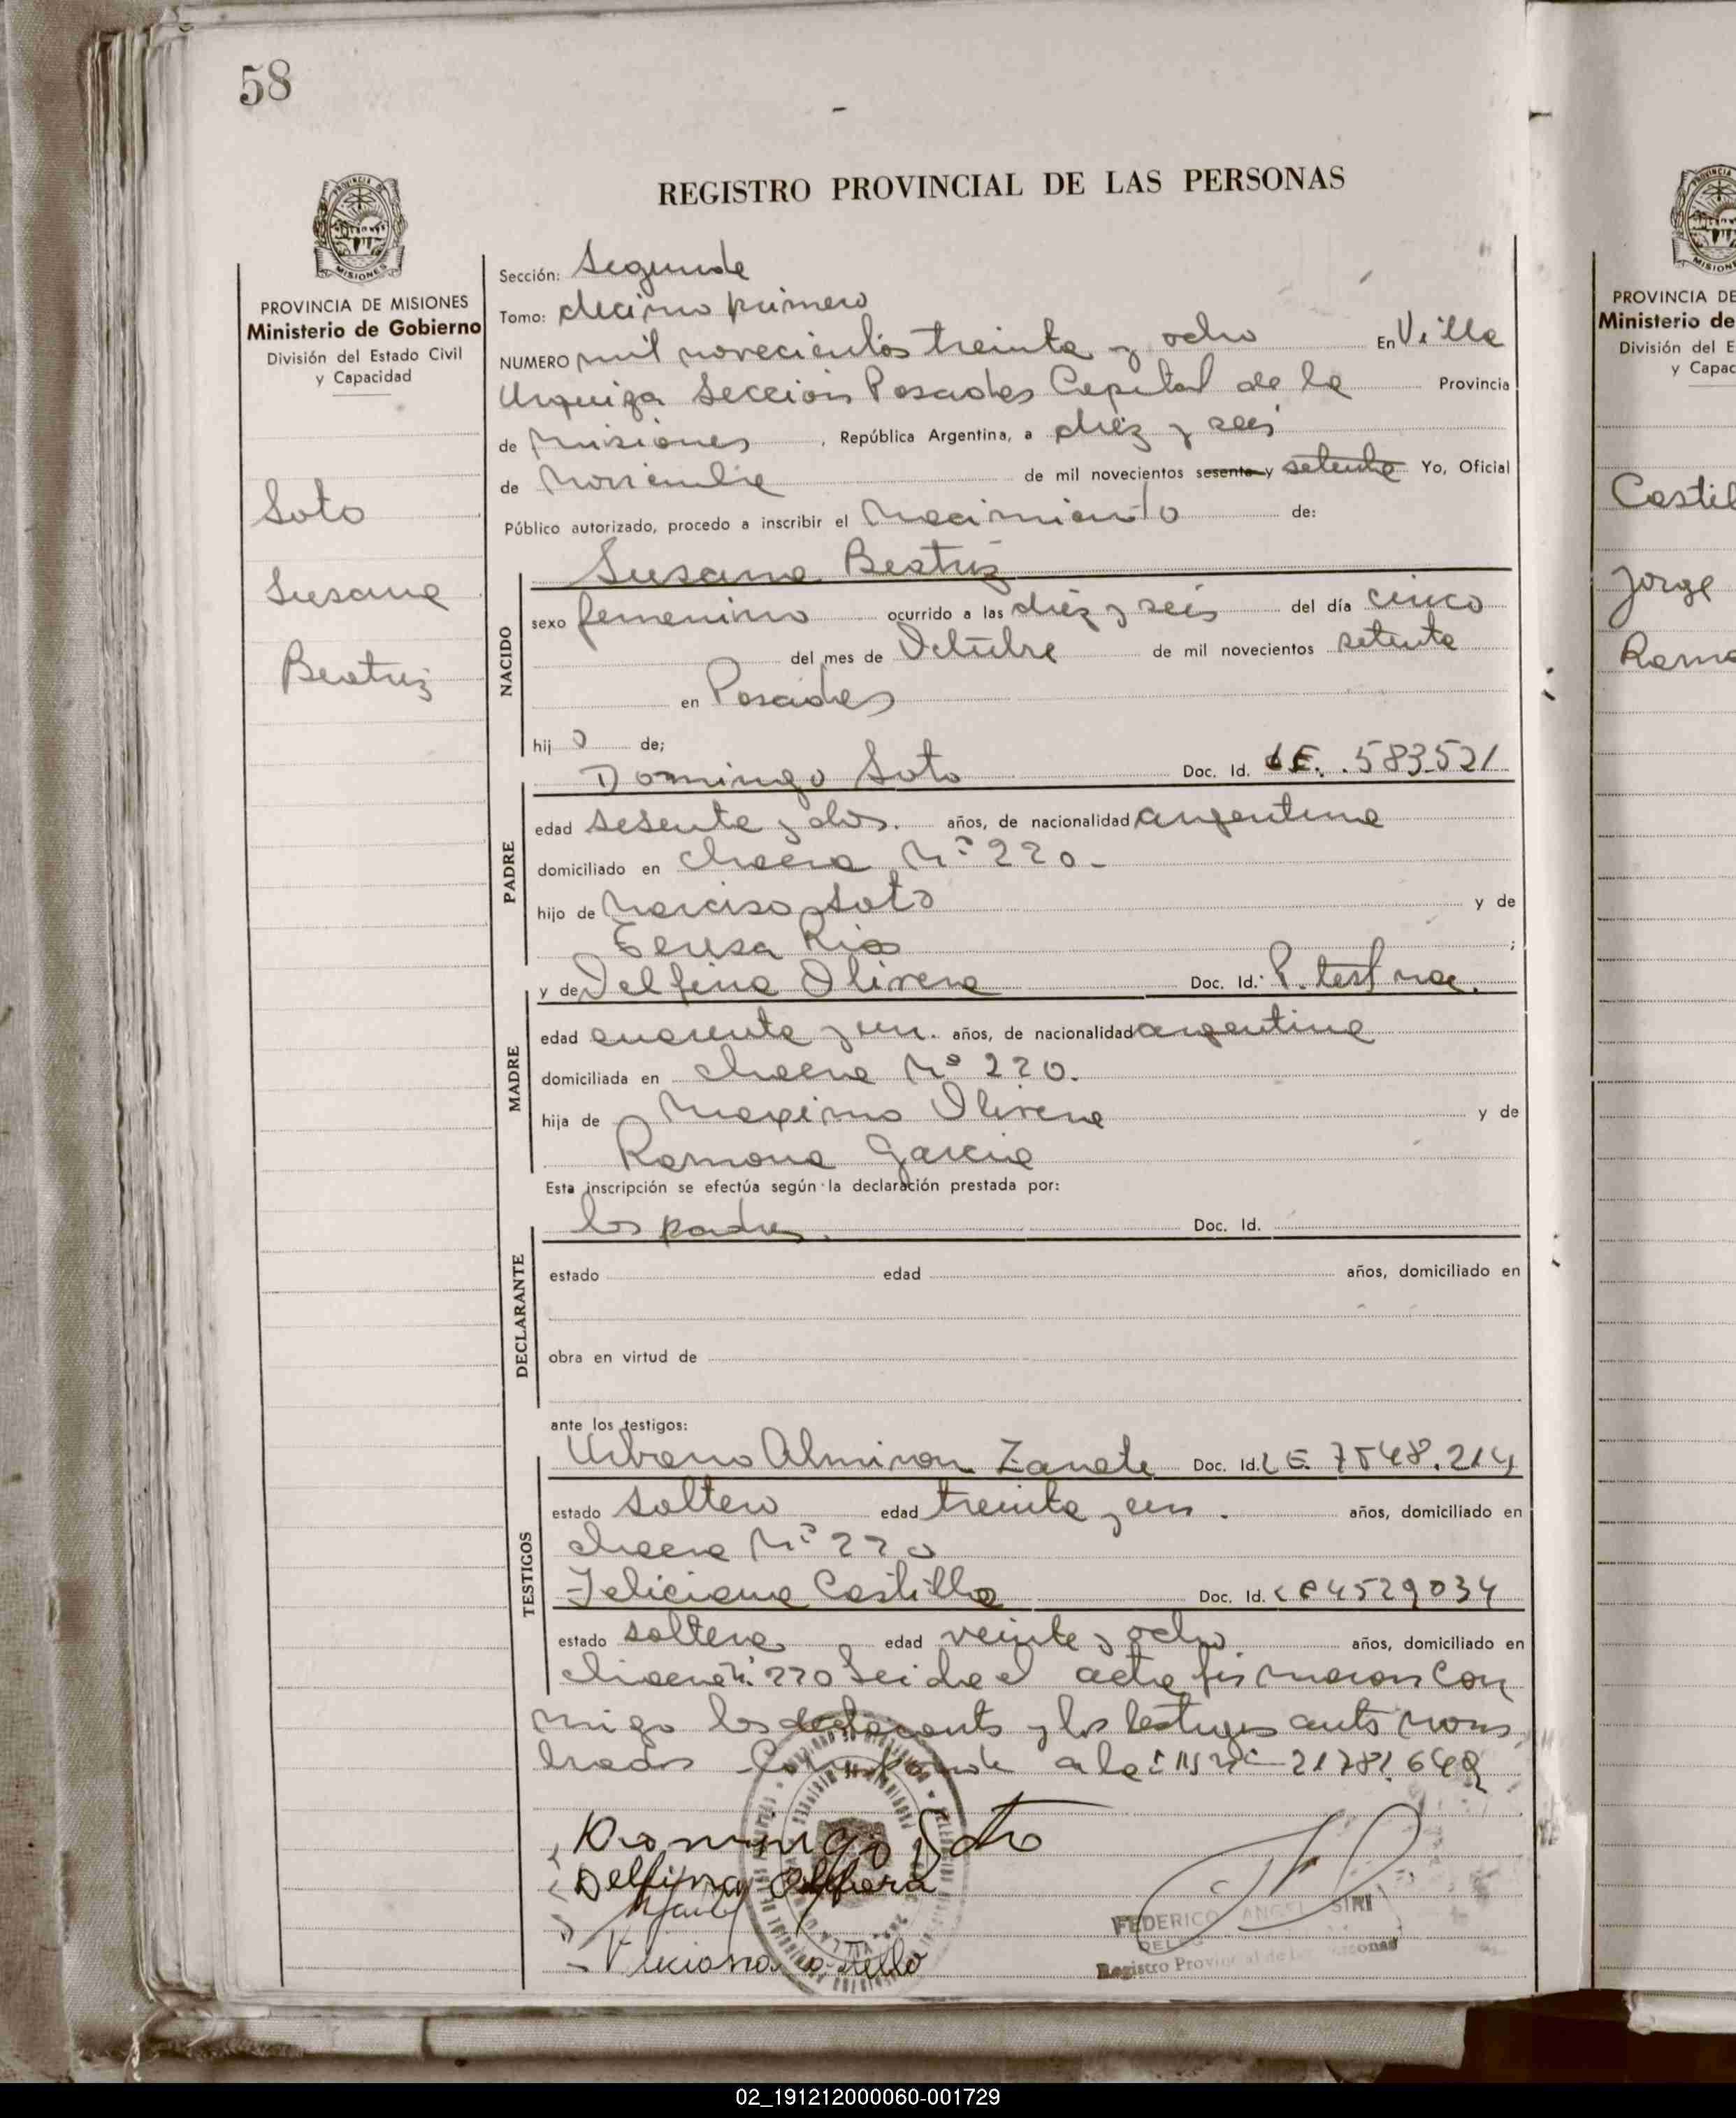 58
REGISTRO PROVINCIAL DE LAS PERSONAS
PROVINCIA DE MISIONES
Ministerio de Gobierno
División del Estado Civil
y Capacidad
Soto
Susana
Beatriz
Sección: Segunda
Tomo: decimo primero
NUMERO mil novecientos treinta y ocho En Villa
Urquiza Sección Posadas Capital de la Provincia
de Misiones, República Argentina, a diez y seis
de Noviembre de mil novecientos sesenta y setenta Yo, Oficial
Público autorizado, procedo a inscribir el nacimiento de:
NACIDO
Susana Beatriz
sexo femenino ocurrido a las diez y seis del día cinco
del mes de Octubre de mil novecientos setenta
en Posadas
hij a de;
PADRE
Domingo Soto Doc. Id. LE. 583.521
edad sesenta y dos. años, de nacionalidad argentina
domiciliado en chacra Nº 220.
hijo de Narciso Soto y de
Teresa Rios ;
MADRE
y de Delfina Olivera Doc. Id. P. test nac.
edad cuarenta y un. años, de nacionalidad argentina
domiciliada en chacra Nº 220.
hija de Maximo Olivera y de
Ramona Garcia
Esta inscripción se efectúa según la declaración prestada por:
DECLARANTE
los padres. Doc. Id.
estado edad años, domiciliado en
obra en virtud de
ante los testigos:
TESTIGOS
Urbano Almiron Zarate Doc. Id. LE. 7548.214
estado soltero edad treinta y un. años, domiciliado en
chacra Nº 220
Feliciana Castillo Doc. Id. LC 4529034
estado soltera edad veinte y ocho años, domiciliado en
chacra nº 220 Leida el acta firmaron con
migo los declarants y los testigos ants nom
brados Corresponde a la MI nº 21781.648
Domingo Soto
Delfina Olivera
Feliciana Castillo
FEDERICO ANGEL SIRI
Registro Provincial de las Personas
PROVINCIA DE
Ministerio de
División del E
y Capac
Castil
Jorge
Ramo
02_191212000060-001729